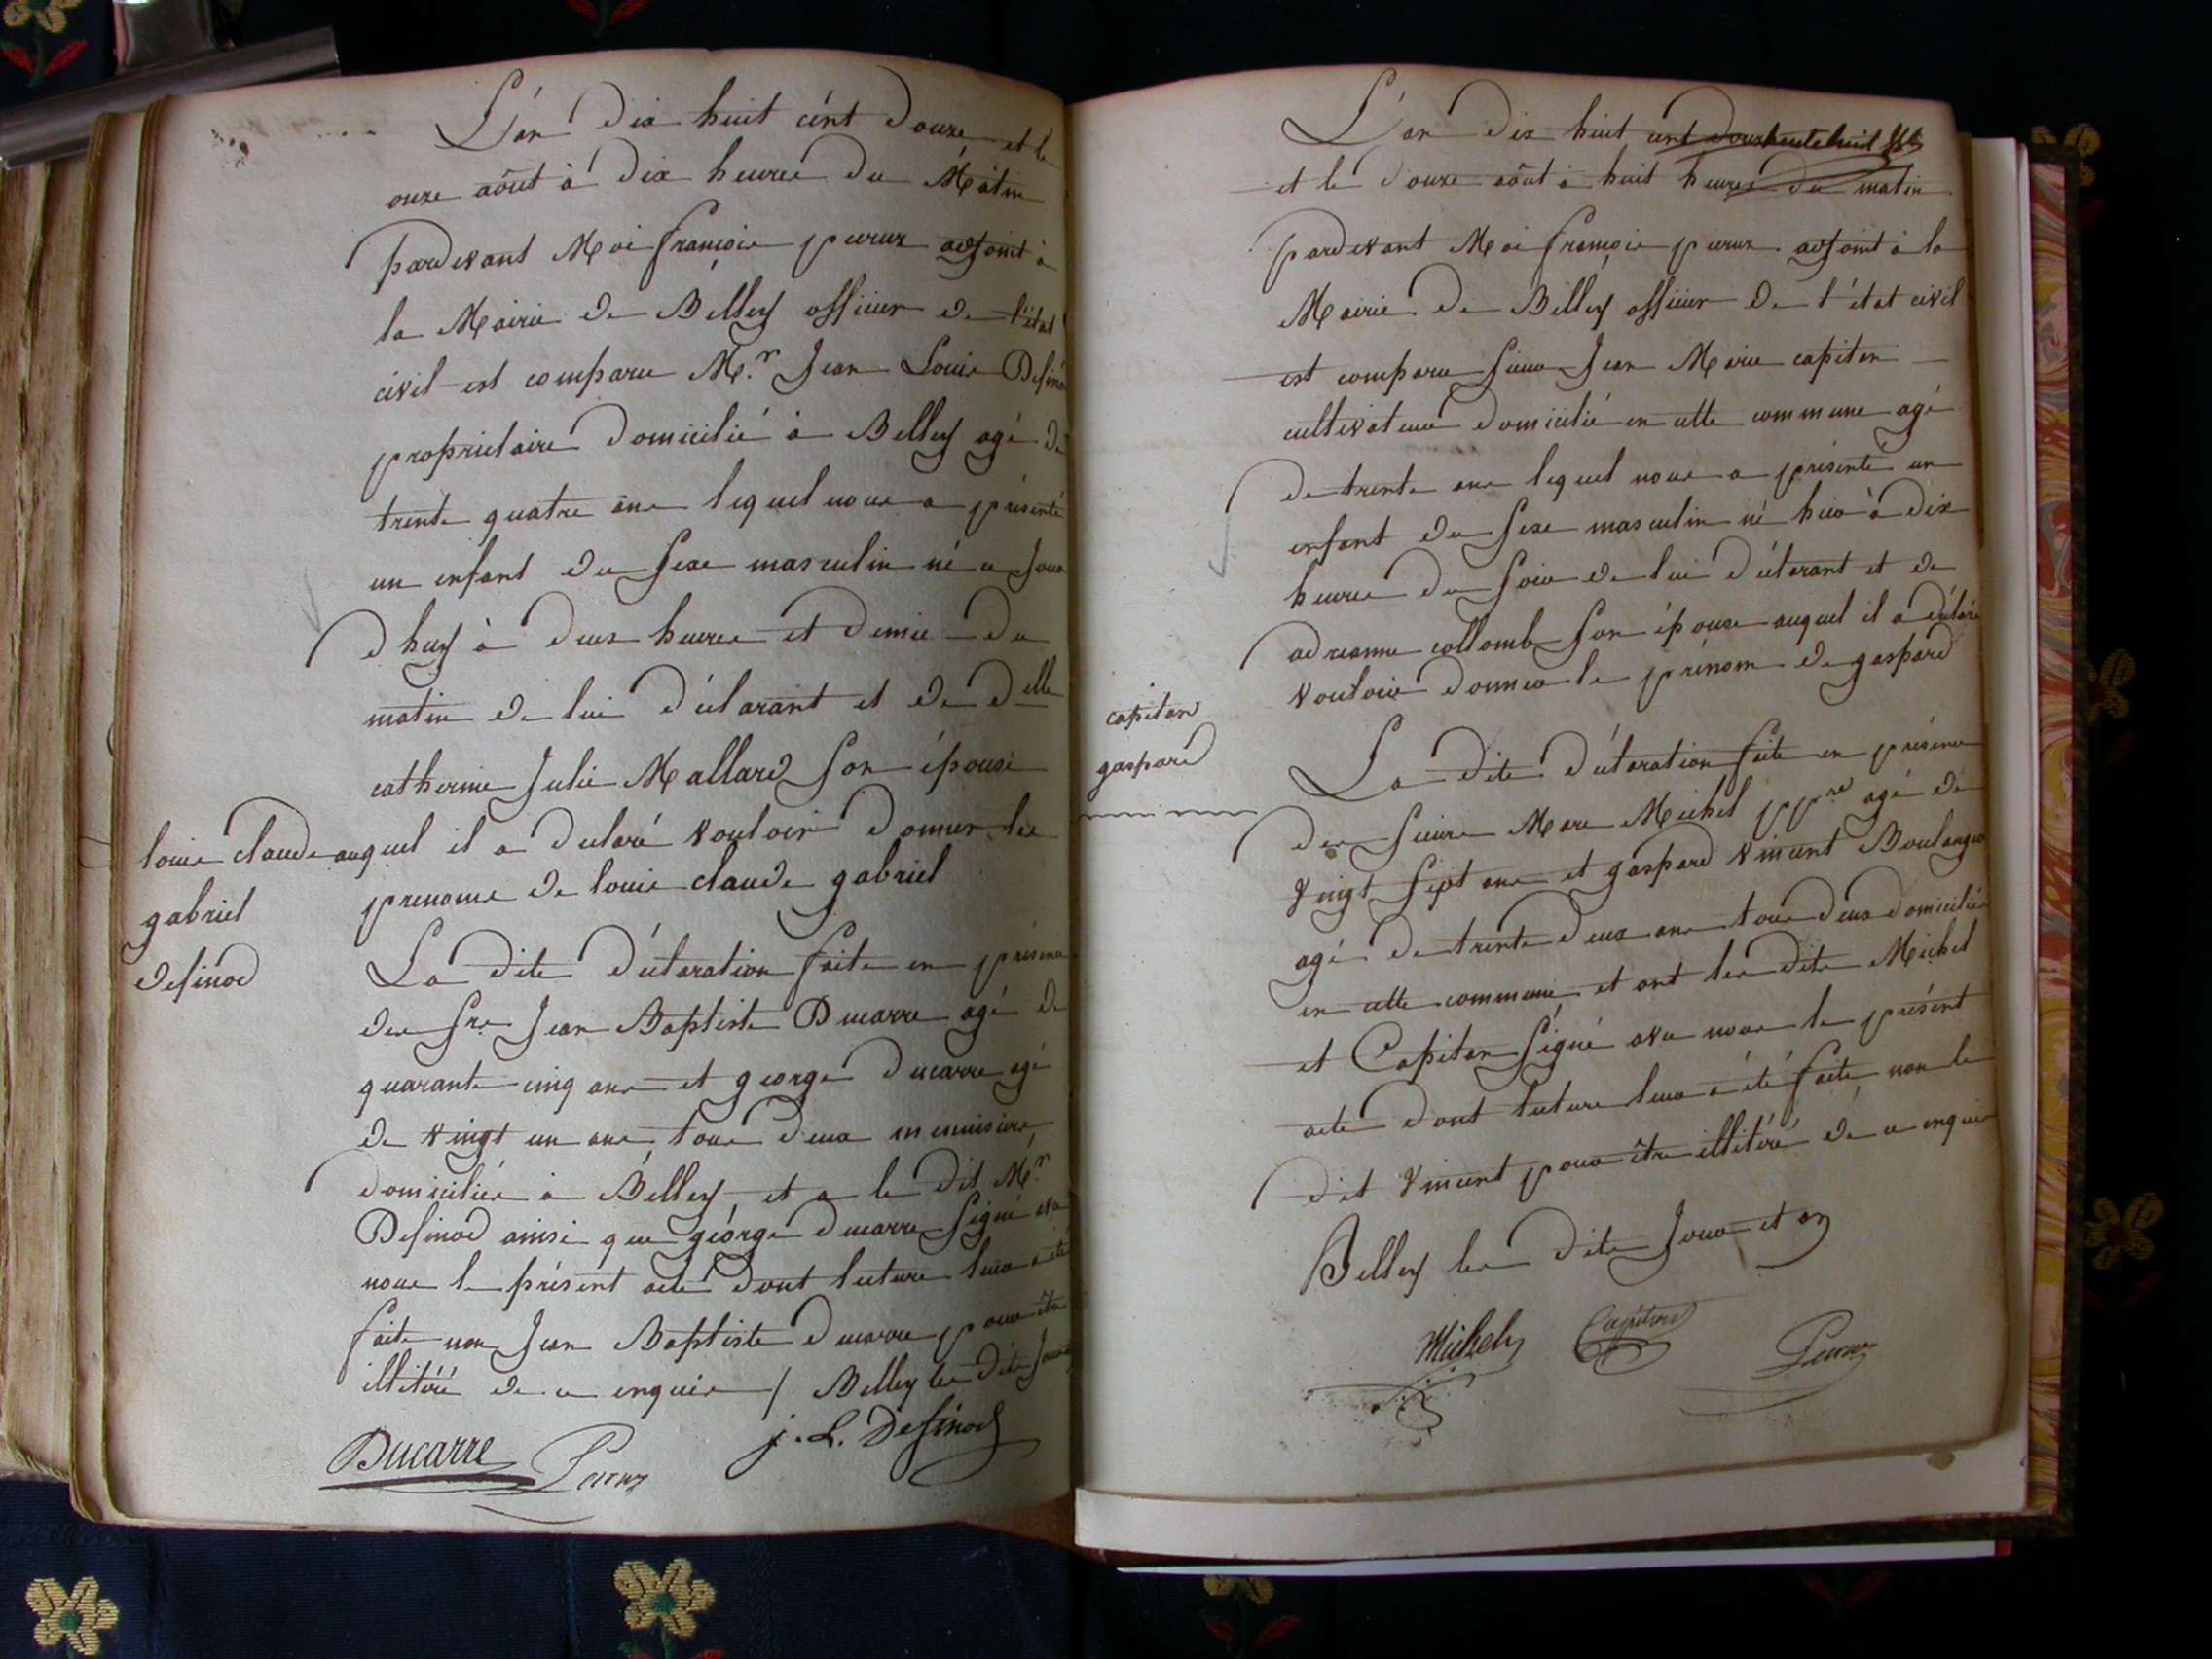 L'an dix huit cent douze et le
onze août à dix heures du Matin
pardevant Moi françois peruz adjoint à
la Mairie de Belley officier de l'état
civil est comparu M.r Jean Louis Desinod
propriétaire domicilié à Belley agé de
trente quatre ans lequel nous a présenté
un enfant du sexe masculin né ce jour
d'huy à deux heures et demie du
matin de lui déclarant et de d.elle
catherine Julie Mallard son épouse
auquel il a déclaré vouloir donner les
prenoms de louis claude gabriel
louis claude
gabriel
desinod
La dite déclaration faite en présence
des srs Jean Baptiste Ducarre agé de
quarante cinq ans et george ducarre agé
de vingt un ans, tous deux menuisiers,
domiciliés à Belley et a le dit M.r
Desinod ainsi que géorge ducarre signé avec
nous le présent acte dont lecture leur a été
faite non Jean Baptiste ducarre pour être
illitéré de ce enquis / Belley les dits jour
Ducarre Peruz j. L. Desinod
L'an dix huit cent douze
et le douze août à huit heures du matin
pardevant Moi françois peruz adjoint à la
Mairie de Belley officier de l'état civil
est comparu sieur Jean Marie capitan
cultivateur domicilié en cette commune agé
de trente ans lequel nous a présenté un
enfant du sexe masculin né hier à dix
heures du soir de lui déclarant et de
adreanne collomb son épouse auquel il a déclaré
vouloir donner le prénom de gaspard
capitan
gaspard
La dite déclaration faite en présence
des sieurs Marc Michel pp.re agé de
vingt sept ans et gaspard vincent Boulanger
agé de trente deux ans tous deux domiciliés
en cette commune, et ont les dits Michel
et Capitan signé avec nous le présent
acte dont lecture leur a été faite, non le
dit vincent pour être illitéré de ce enquis
Belley les dits Jour et an
Michel Capitan Peruz